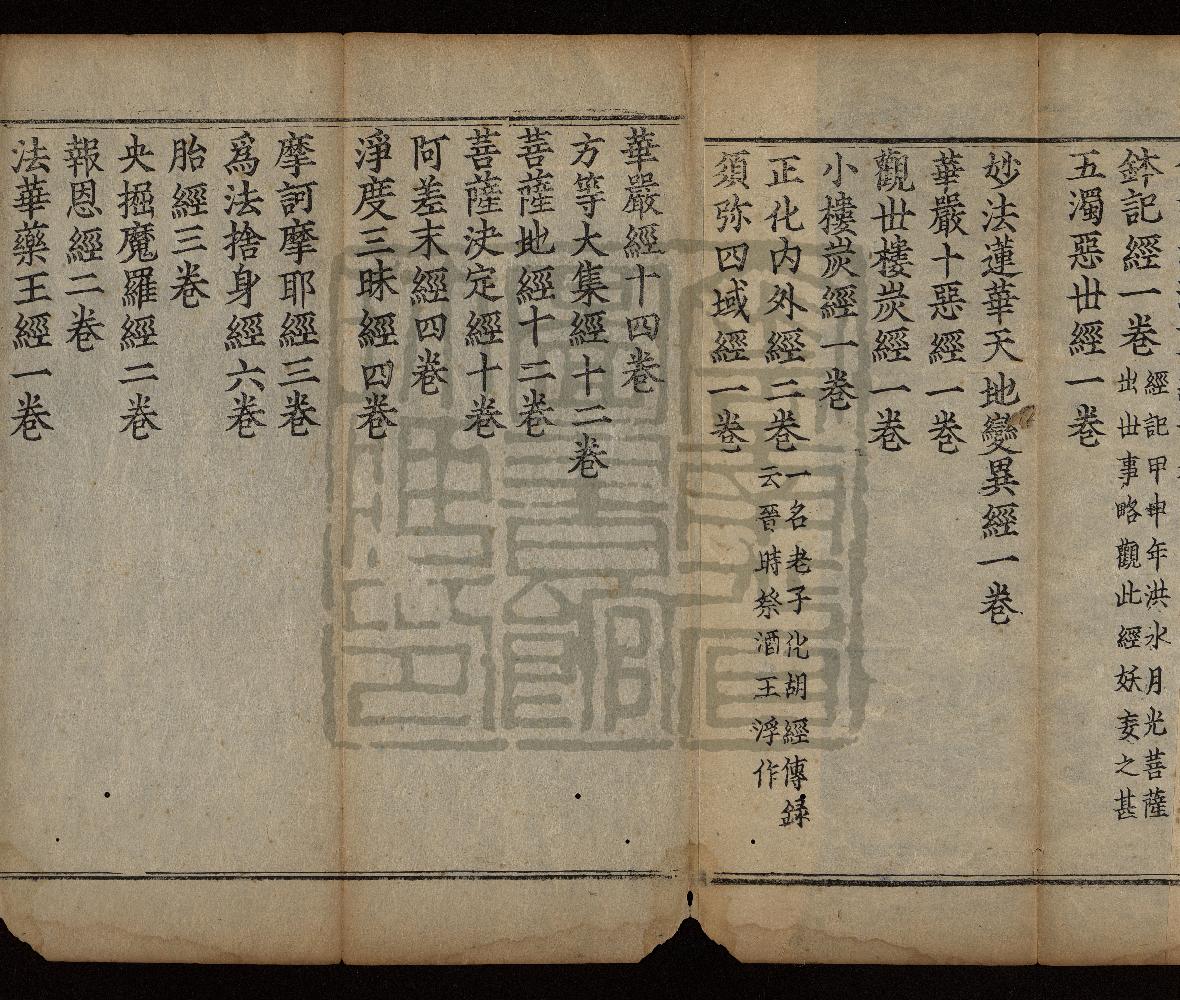 鉢記經一卷 經記甲申年洪水月光菩薩出世事略觀此經妖妄之甚
五濁惡世經一卷
妙法蓮華天地變異經一卷
華嚴十惡經一卷
觀世樓炭經一卷
小樓炭經一卷
正化内外經二卷 一名老子化胡經傳録云晉時祭酒王浮作
須弥四域經一卷
華嚴經十四卷
方等大集經十二卷
菩薩地經十二卷
菩薩決定經十卷
阿差末經四卷
淨度三昧經四卷
摩訶摩耶經三卷
爲法捨身經六卷
胎經三卷
央掘魔羅經二卷
報恩經二卷
法華藥王經一卷